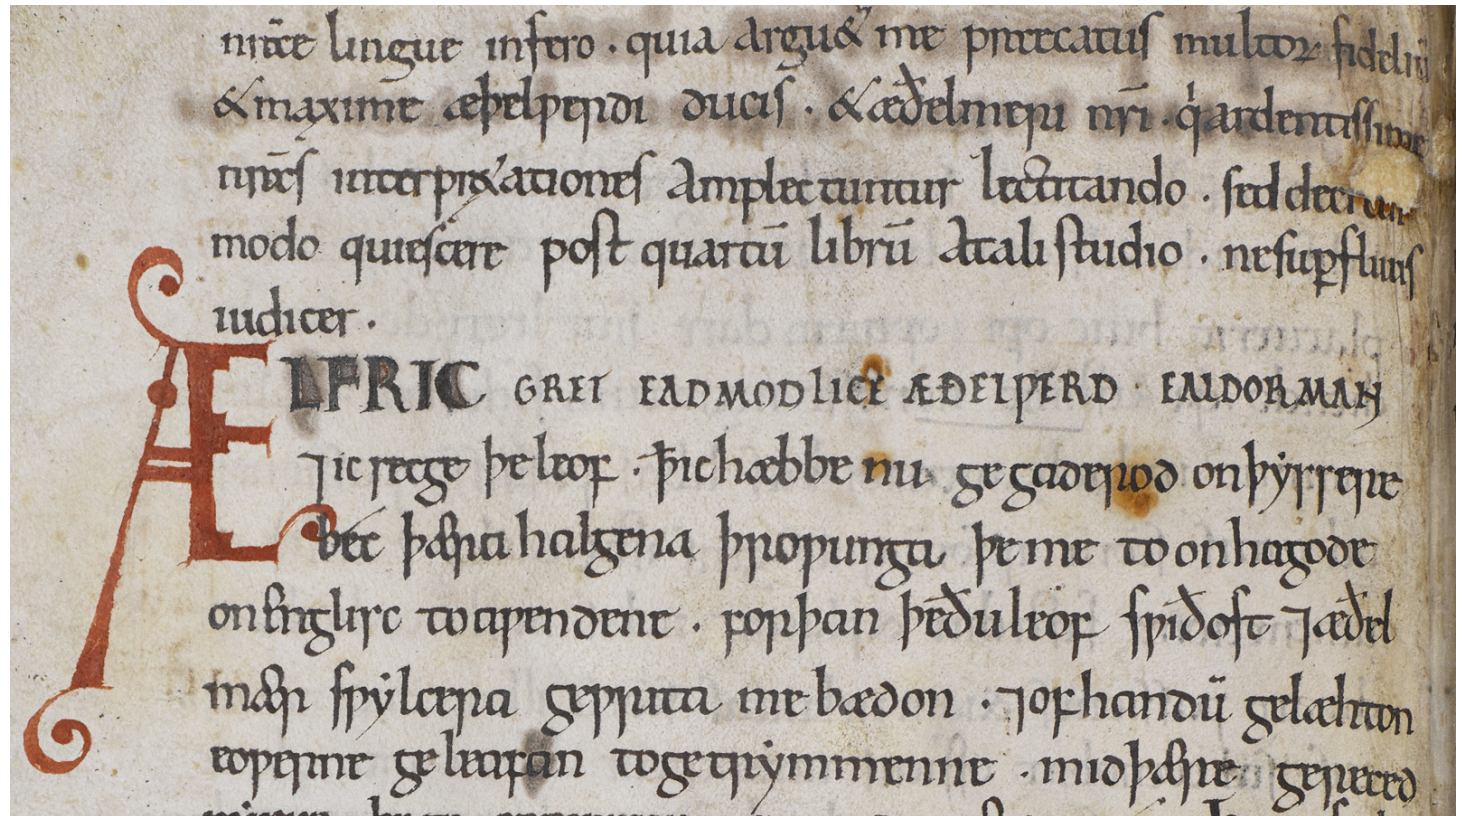 nr̄ȩ lingue infero · quia arguet me precatus multoꝝ fideliū
& maxime æþelƿerdi ducis · & æðelmeri nr̄i · qi ardentissime
nr̄as interpr&ationes amplectuntur lectitando · sed decreui
modo quiescere post quartū librū a tali studio · ne suꝑfluus
iudicer ·
ÆLFRIC GRET EADMODLICE ÆÐELǷERD · EALDORMAN
⁊ ic secge þe leof · ꝥ ic hæbbe nu gegaderod on þyssere
béc þæra halgena þroƿunga þe me to onhagode
on englisc to aƿendene · forþan þe ðu leof sƿiðost ⁊ æðel
mær sƿylcera geƿrita me bædon · ⁊ of handū gelæhton
eoƿerne geleafan to getrymmenne · mid þære gereced